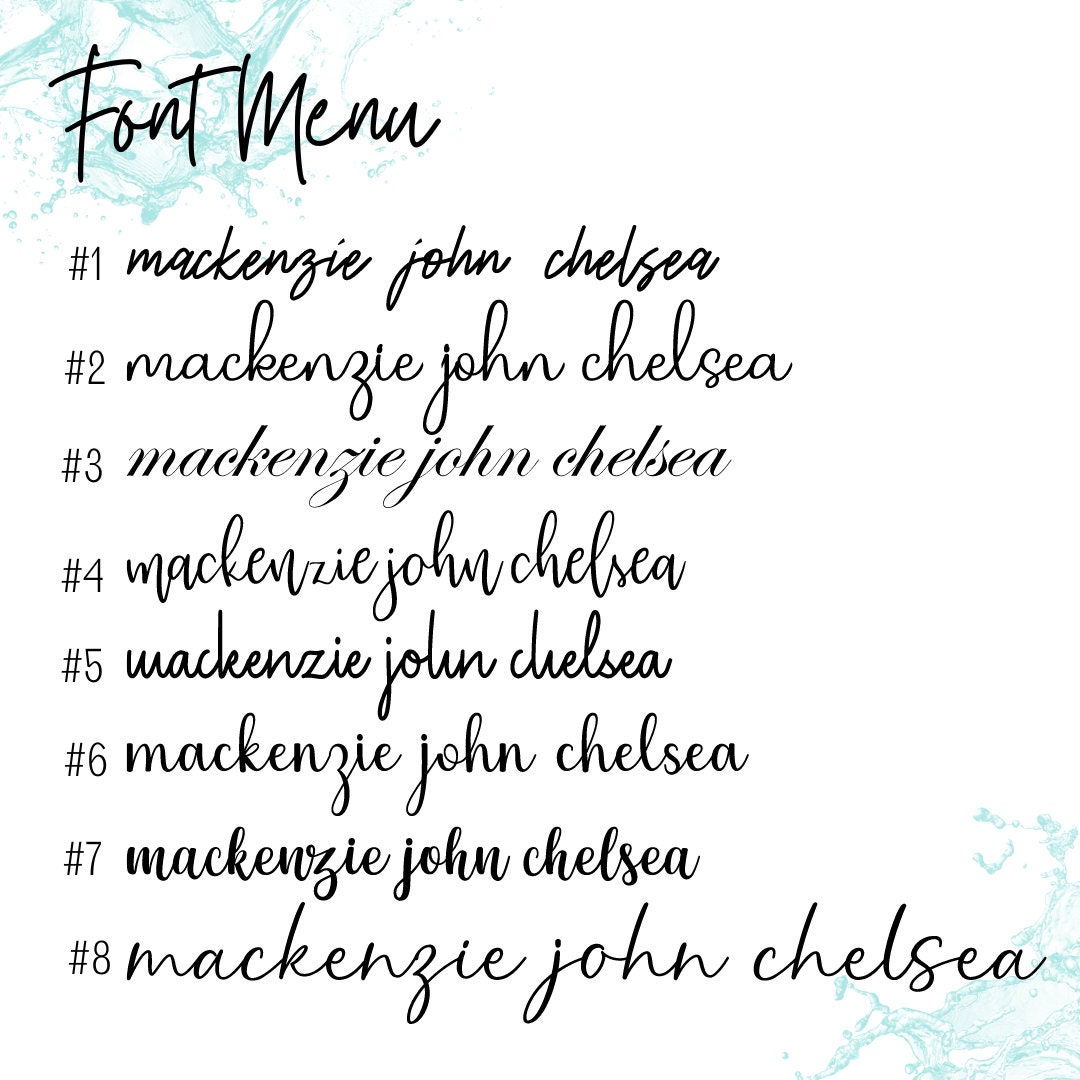 Font Menu
#1 mackenzie john chelsea
#2 mackenzie john chelsea
#3 mackenzie john chelsea
#4 mackenzie john chelsea
#5 mackenzie john chelsea
#6 mackenzie john chelsea
#7 mackenzie john chelsea
#8 mackenzie john chelsea